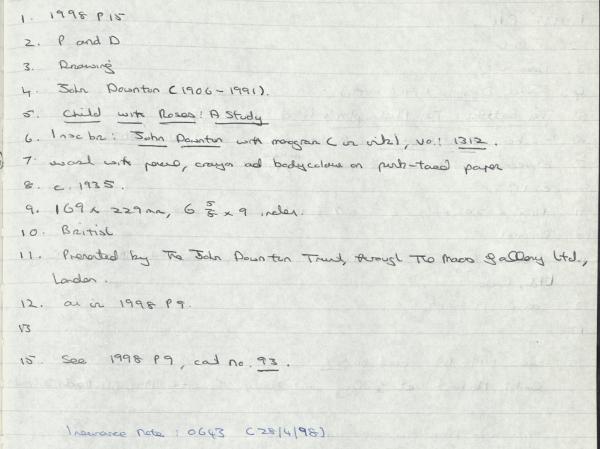 1. 1998 P 15
2. P and D
3. Drawing
4. John Downton (1906-1991).
5. Child with Roses: A Study
6. Inscbr: John Downton with monogram (in circle), vo.: 1312.
7 wash with pencil, crayon and bodycolour on pink-toned paper
8. c. 1935.
9. 169 x 229 mm, 6 5/8 x 9 inches.
10. British
11. Presented by The John Downton Trust, through The Maas Gallery Ltd.,
London.
12. as in 1998 P9.
13
15. See 1998 P9, cat no. 93.
Insurance note: 0643 (28/4/98)